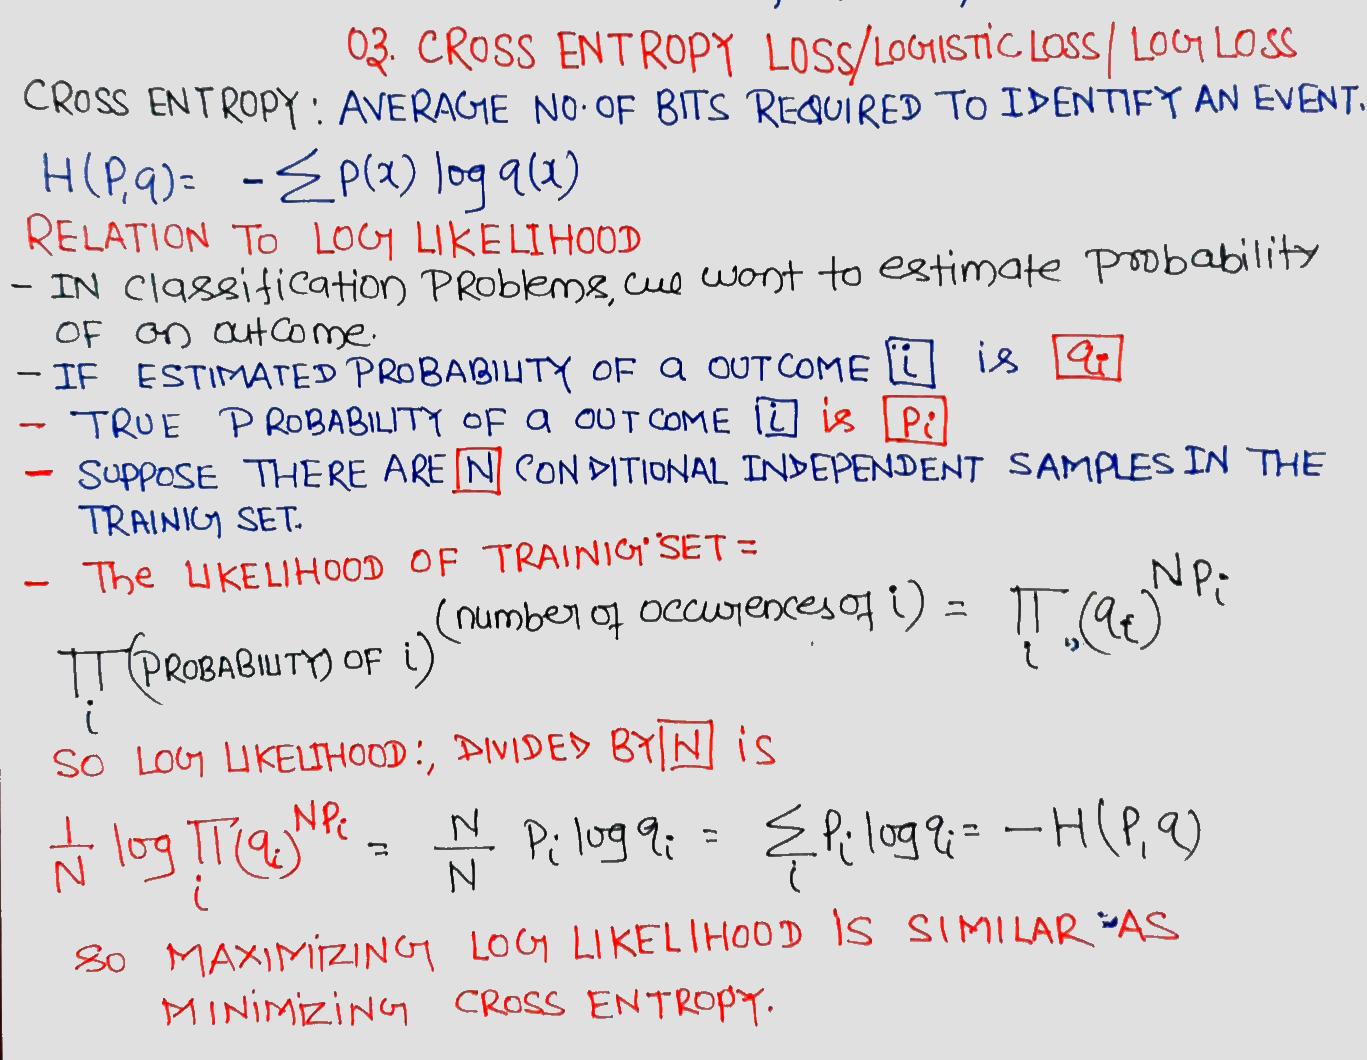 Q3. CROSS ENTROPY LOSS/LOGISTIC LOSS/LOG LOSS
CROSS ENTROPY: AVERAGE NO. OF BITS REQUIRED TO IDENTIFY AN EVENT.
H(P,q)= -∑ p(x) log q(x)
RELATION TO LOG LIKELIHOOD
- IN classification PROblems, we want to estimate probability
OF an outcome.
- IF ESTIMATED PROBABILITY OF a OUTCOME i is qi
- TRUE PROBABILITY OF a OUTCOME i is Pi
- SUPPOSE THERE ARE N CONDITIONAL INDEPENDENT SAMPLES IN THE
TRAINIG SET.
- The LIKELIHOOD OF TRAINIG SET =
∏i (PROBABILITY OF i)^(number of occurences of i) = ∏i (qi)^NPi
SO LOG LIKELIHOOD:, DIVIDED BY N is
1/N log ∏i (qi)^NPi = N/N Pi log qi = ∑i Pi log qi = -H(P,q)
SO MAXIMIZING LOG LIKELIHOOD IS SIMILAR AS
MINIMIZING CROSS ENTROPY.